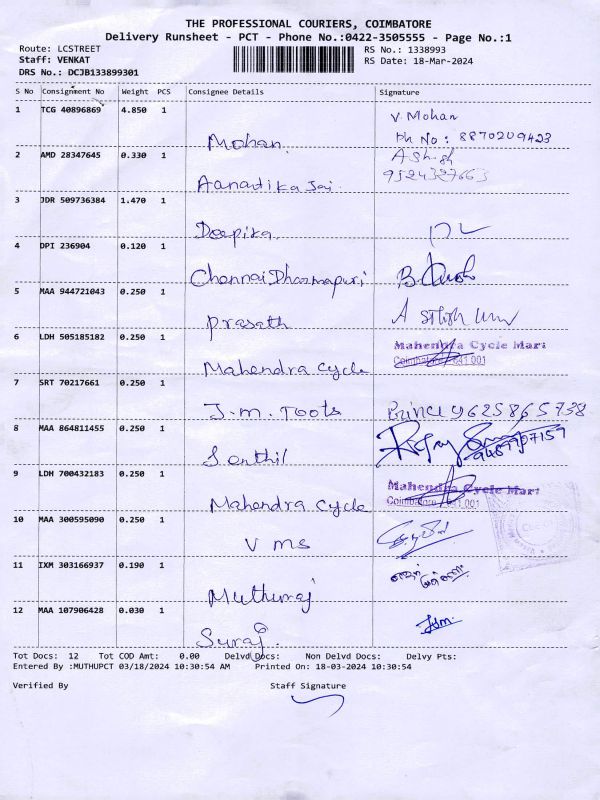 THE PROFESSIONAL COURIERS, COIMBATORE
Delivery Runsheet - PCT - Phone No.:0422-3505555 - Page No.:1
Route: LCSTREET RS No.: 1338993
Staff: VENKAT RS Date: 18-Mar-2024
DRS No.: DCJB133899301
S No Consignment No Weight PCS Consignee Details Signature
1 TCG 40896869 4.850 1 V. Mohan
Mohan. Ph No: 8870209423
2 AMD 28347645 0.330 1 Ashish
Aanadika Jai. 9524327663
3 JDR 509736384 1.470 1
Deepika.
4 DPI 236904 0.120 1
Chennai Dharmapuri
5 MAA 944721043 0.250 1
Prasath
6 LDH 505185182 0.250 1 Mahendra Cycle Mart
Mahendra Cycle Coimbatore - 641 001
7 SRT 70217661 0.250 1
J.m. Toots Prince 9625865738
8 MAA 864811455 0.250 1
Senthil 9487707159
9 LDH 700432183 0.250 1 Mahendra Cycle Mart
Mahendra Cycle Coimbatore - 641 001
10 MAA 300595090 0.250 1
V ms
11 IXM 303166937 0.190 1
Muthuraj
12 MAA 107906428 0.030 1
Suraj.
Tot Docs: 12 Tot COD Amt: 0.00 Delvd Docs: Non Delvd Docs: Delvy Pts:
Entered By :MUTHUPCT 03/18/2024 10:30:54 AM Printed On: 18-03-2024 10:30:54
Verified By Staff Signature